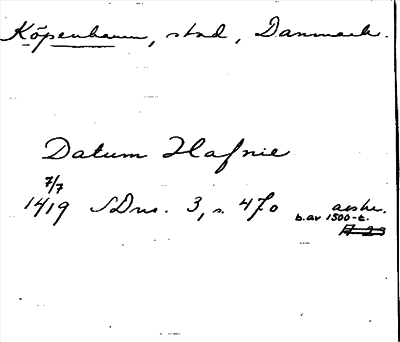 Köpenhamn, stad, Danmark.
Datum Hafnie
7/7
1419 SDns. 3, s. 470 avskr.
b. av 1500-t.